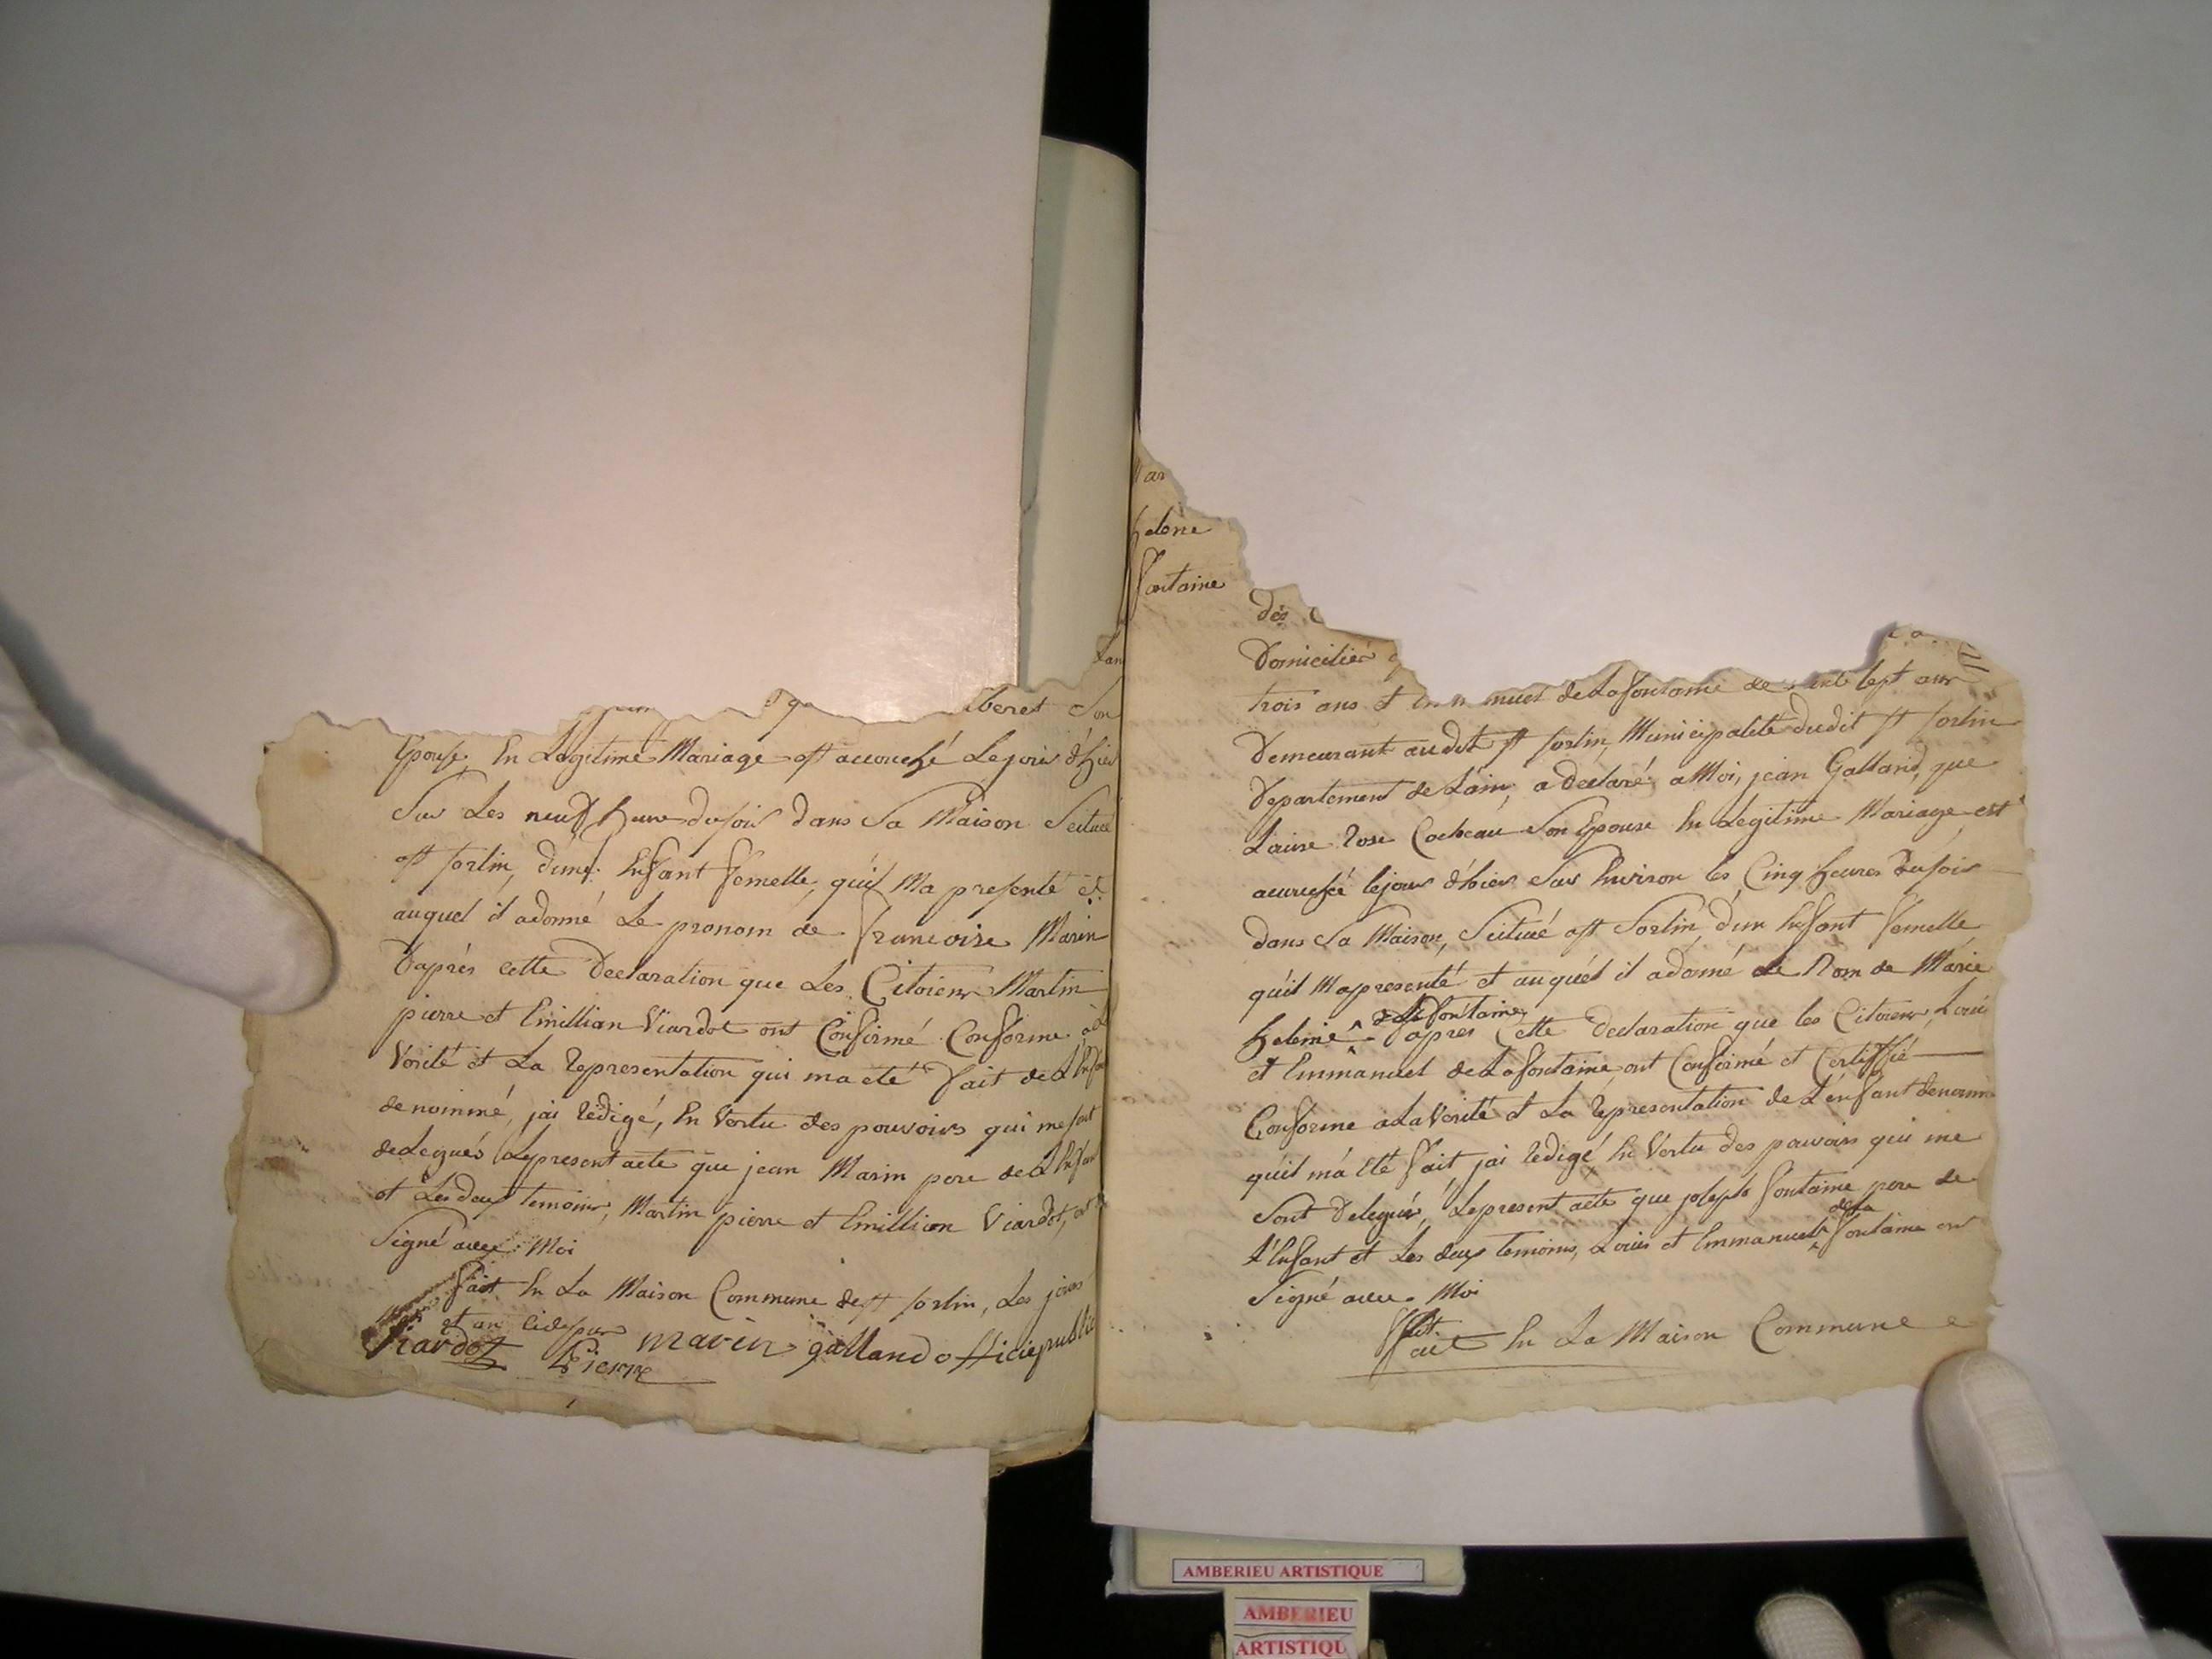 beret Son
Epouse En Legitime Mariage est accouché Le jour d'hier
Sur Les neuf heure du soir dans Sa Maison Scitué
a st sorlin, d'une Enfant femelle, qu'il Ma presenté et
auquel il adonné Le pronom de francoise Marin
D'après cette Declaration que Les Citoiens Martin
pierre et Emillian Viardot ont Confirmé Conforme a la
Vérité et La Representation qui ma été fait de L'Enfant
denommé, jai Rédigé, En Vertu des pouvoirs qui me sont
delegués Le present acte que jean Marin pere de L'Enfant
et Les deux temoins, Martin pierre et Emillion Viardot, ont
Signé avec Moi
fait En La Maison Commune de st sorlin, Les jours
et an cidessus
Viardot Pierre marin galland officie public
Mar
helene
fontaine
dès
Domicilié
trois ans et Emmanuel de Lafontaine de sept ans
Demeurant audit st sorlin, Municipalité dudit st sorlin
Departement de L'ain, a declaré a Moi, jean Galland, que
Laise Rose Cocheau Son Epouse En Legitime Mariage est
accouchée le jour d'hier Sur Environ les Cinq heures du soir
dans Sa Maison, Scitué a st Sorlin, d'un Enfant femelle
qu'il Ma presenté et auquel il adonné le Nom de Marie
helene delafontaine D'apres Cette declaration que les Citoiens, Louis
et Emmanuel de Lafontaine, ont Confirmé et Certiffié
Conforme a La Vérité et La Representation de L'enfant denommé
quil m'a Eté fait, jai Redigé En Vertu des pouvoirs qui me
Sont Delegués, Le present acte que joseph fontaine pere de
L'Enfant et Les deux temoins, Louis et Emmanuel de la fontaine ont
Signé avec Moi
fait En La Maison Commune
AMBERIEU ARTISTIQUE
AMBERIEU
ARTISTIQU